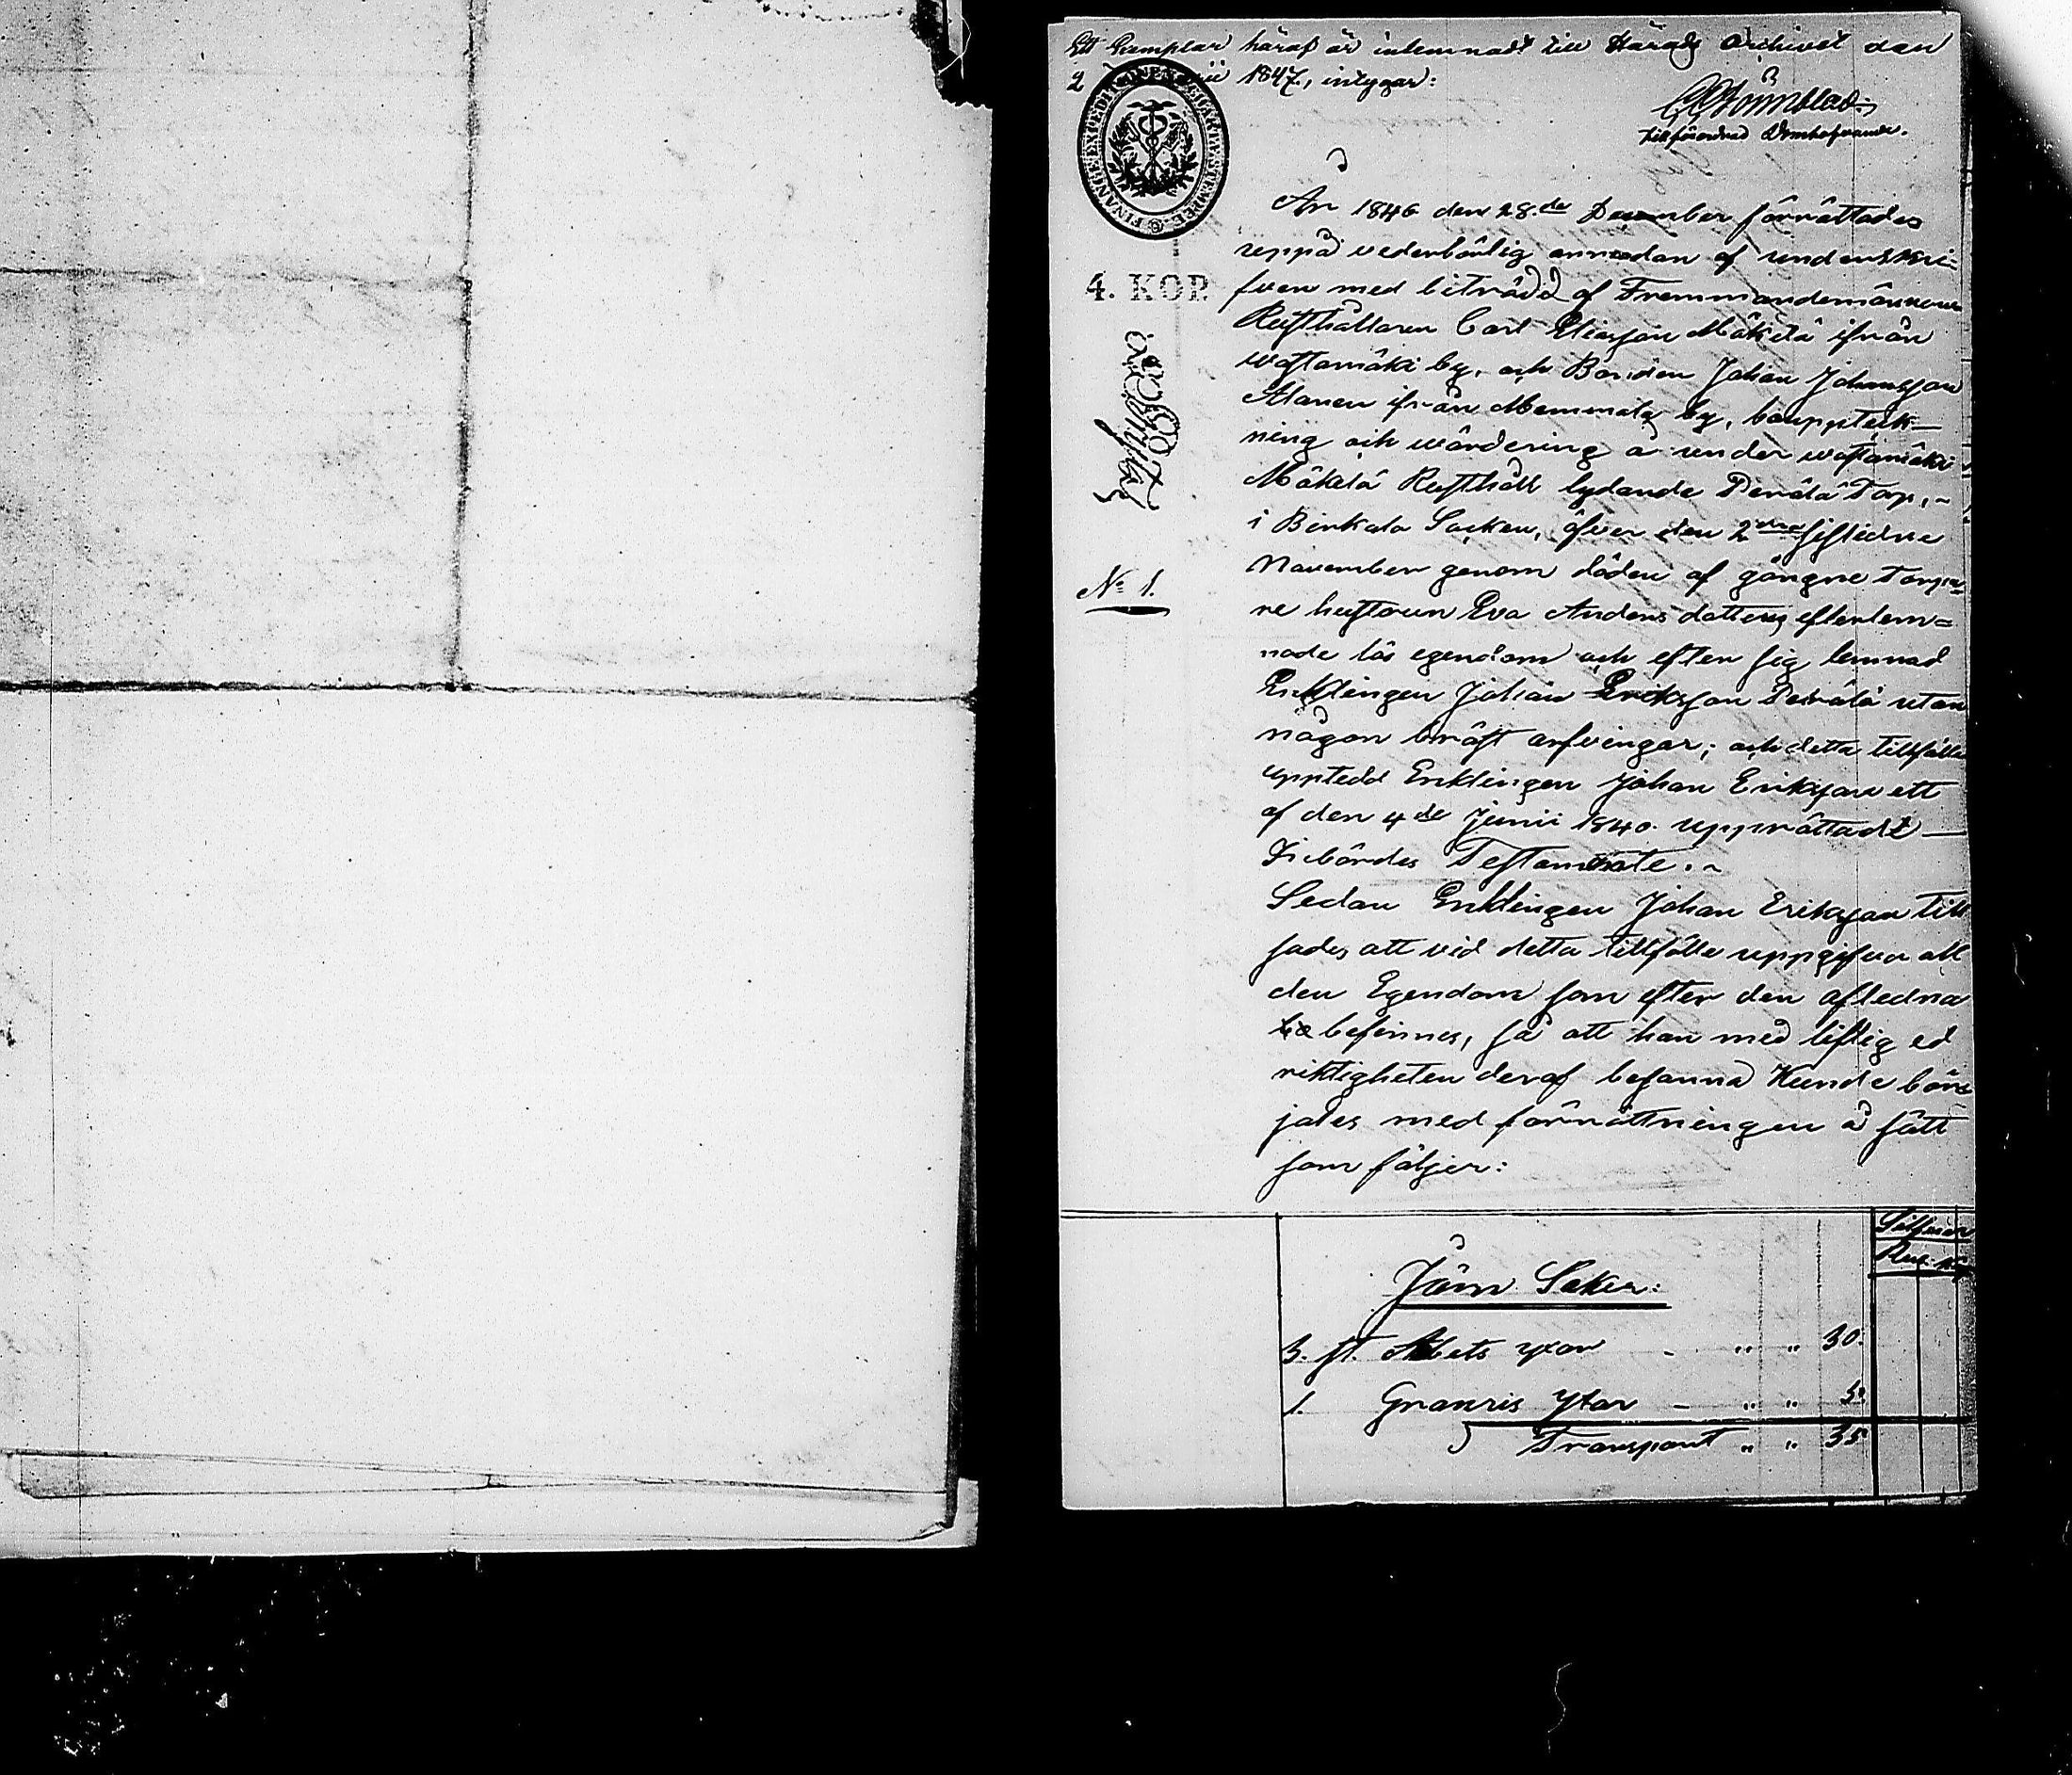 Ett Exemplar häraf är inlemnadt till Härads Archivet den
2 1847, intygar:
tillförordnad Domhafvande.
FINANCE EXPEDITIONEN CHARTÆ STEMPEL
4. KOP.
N° 1.
År 1846 den 28.de December förrättades
uppå vederbörlig anmodan af underskri-
fven med biträde af Fremmandemännerne
Rusthållaren Carl Eliasson Mäkelä ifrån
Wastamäki by, och Bonden Johan Johansson
Alanen ifrån by, bouppteck-
ning och wärdering å under Wastamäki
Mäkelä Rusthåll lydande Perälä Torp,
i Birkala Socken, öfver den 2dra sistledne
November genom döden af gångne Torpa-
re hustrun Eva Anders dotters efterlem=
nade lös egendom och efter sig lemnad
Enklingen Johan Eriksson Perälä utan
någon bröst arfvingar; och detta tillfälle
uppted Enklingen Johan Eriksson ett
af den 4de Junii 1840. upprättadt
Inbördes Testamente.
Sedan Enklingen Johan Eriksson till
sades att vid detta tillfälle uppgifva all
den Egendom som efter den aflednа
befinnes, så att han med liflig ed
riktigheten deraf besanna Kunde bör=
jades med förrättningen å sätt
som följer:
Silfver
Rub. Kop
Järn Saker:
3. st. Arbets yxor - " " 30.
1. Granris Yxor - " " 5.
Transport " " 35